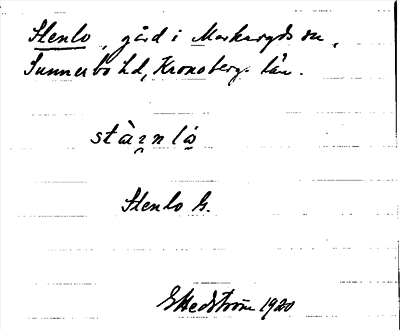 Stenlo, gård i Markaryds sn,
Sunnerbo hd, Kronobergs län.
stàinlå̤
Stenlo G.
G Hedström 1920